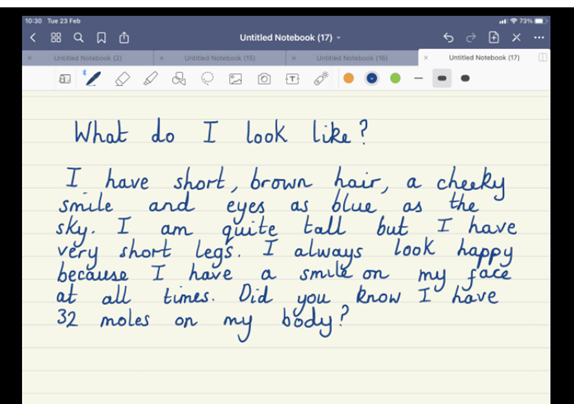 10:30 Tue 23 Feb
73%
Untitled Notebook (17)
Untitled Notebook (2)
Untitled Notebook (15)
Untitled Notebook (16)
Untitled Notebook (17)
What do I look like?
I have short, brown hair, a cheeky
smile and eyes as blue as the
sky. I am quite tall but I have
very short legs. I always look happy
because I have a smile on my face
at all times. Did you know I have
32 moles on my body?